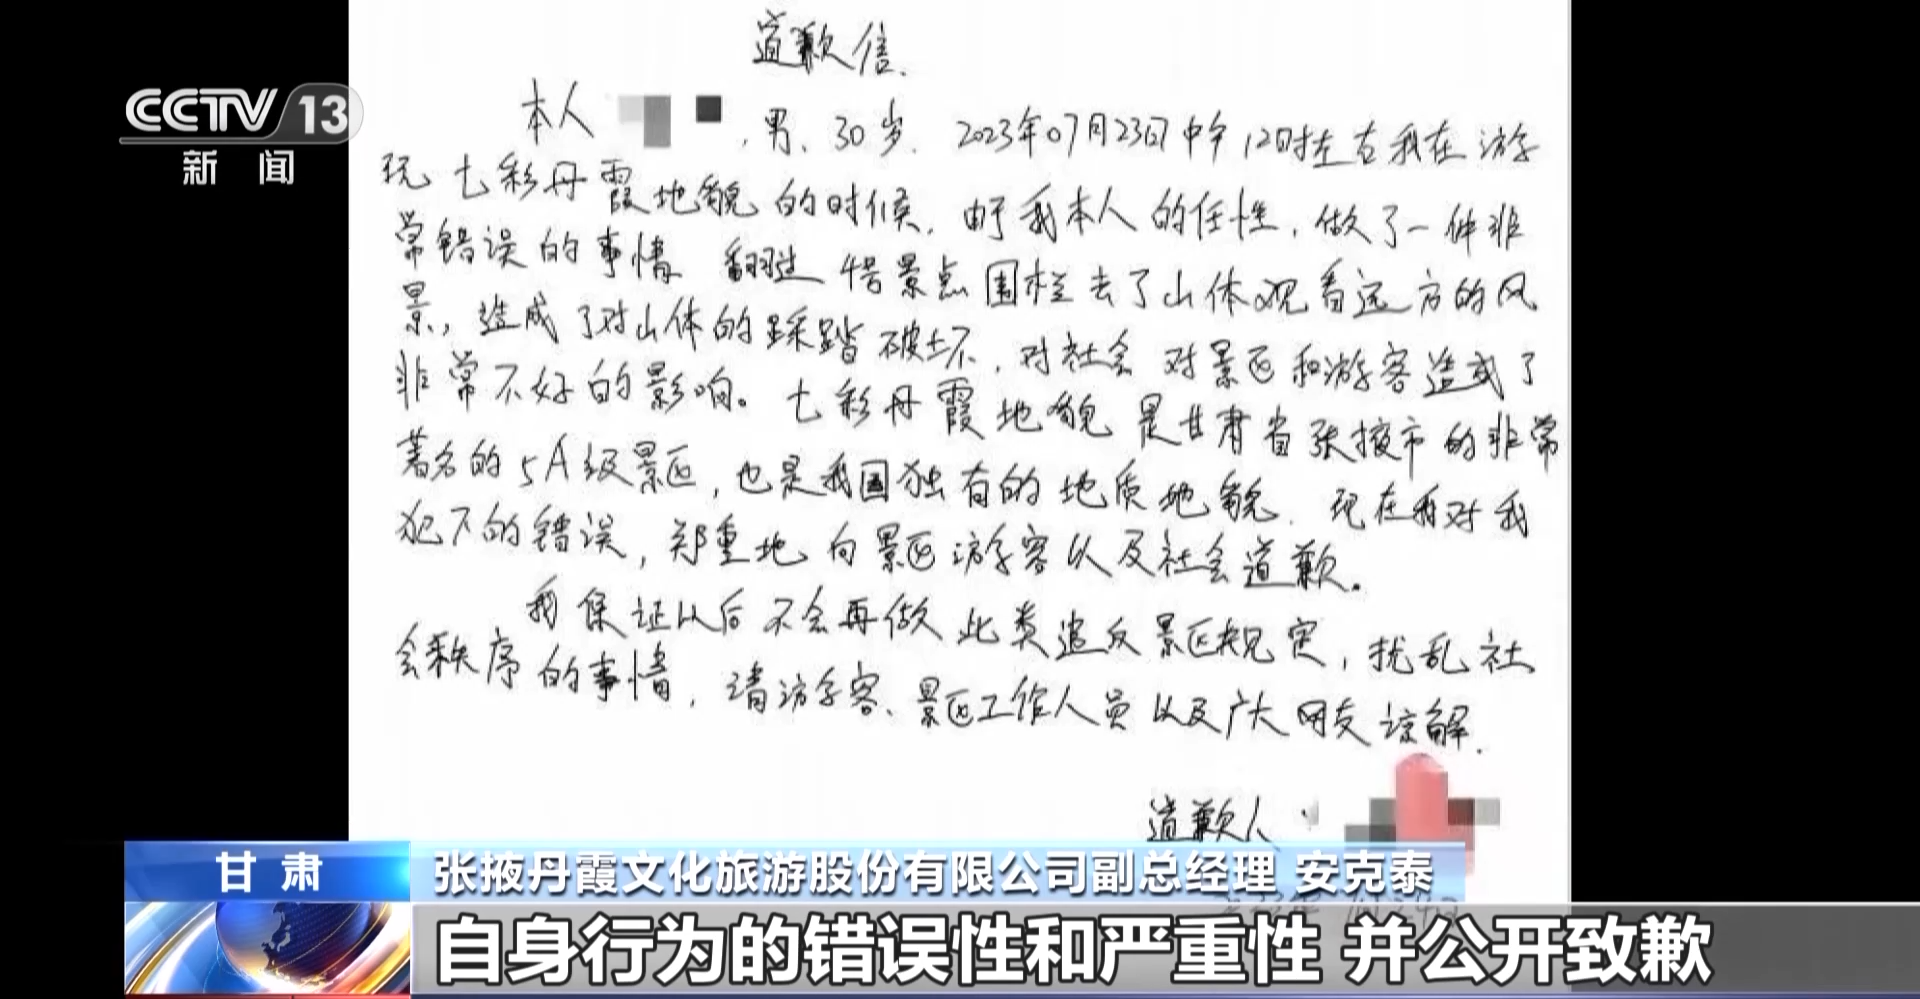 道歉信.
CCTV 13
新闻
本人 ,男、30岁. 2023年07月23日中午12时左右我在游
玩七彩丹霞地貌的时候.由于我本人的任性,做了一件非
常错误的事情 翻过 景点围栏去了山体观看远方的风
景,造成了对山体的踩踏破坏.对社会对景区和游客造成了
非常不好的影响。七彩丹霞地貌是甘肃省张掖市的非常
著名的5A级景区,也是我国独有的地质地貌.现在我对我
犯下的错误,郑重地向景区游客以及社会道歉。
我保证以后不会再做此类违反景区规定,扰乱社
会秩序的事情.请游客、景区工作人员以及广大网友谅解.
道歉人:
甘肃
张掖丹霞文化旅游股份有限公司副总经理 安克泰
自身行为的错误性和严重性 并公开致歉